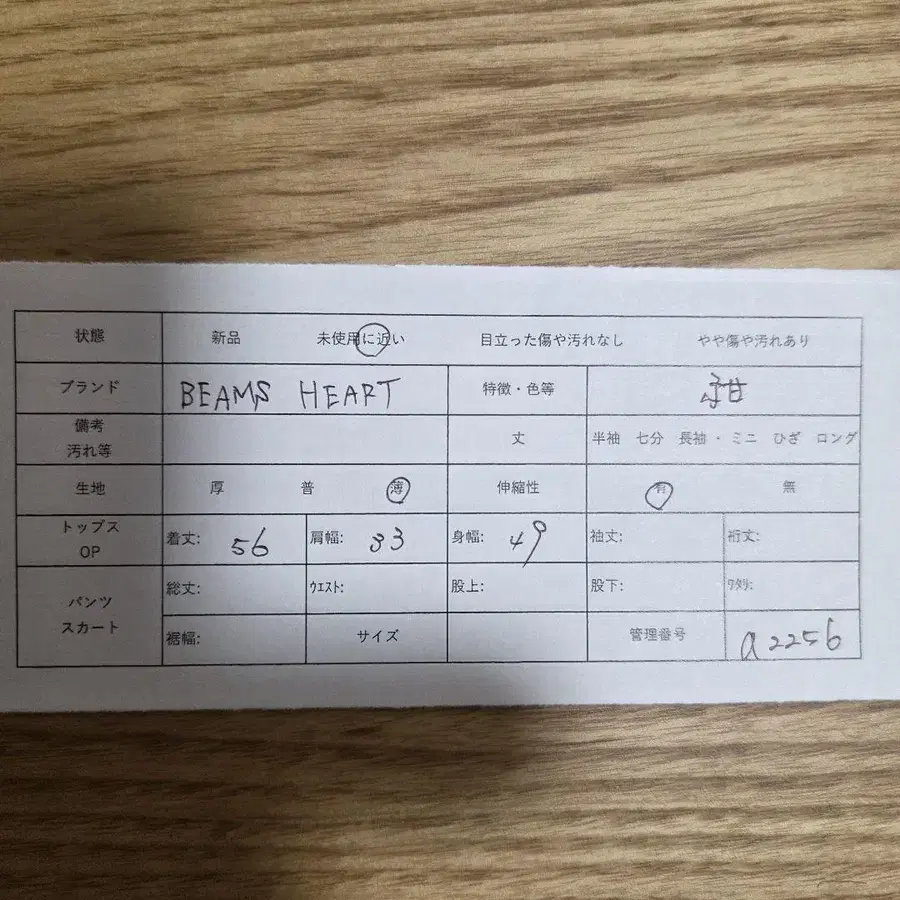 状態 新品 未使用に近い 目立った傷や汚れなし やや傷や汚れあり
ブランド BEAMS HEART 特徴・色等 紺
備考
汚れ等 丈 半袖 七分 長袖・ミニ ひざ ロング
生地 厚 普 薄 伸縮性 有 無
トップス
OP 着丈: 56 肩幅: 33 身幅: 49 袖丈: 裄丈:
パンツ
スカート
総丈: ウエスト: 股上: 股下: ワタリ:
裾幅: サイズ 管理番号 a2256